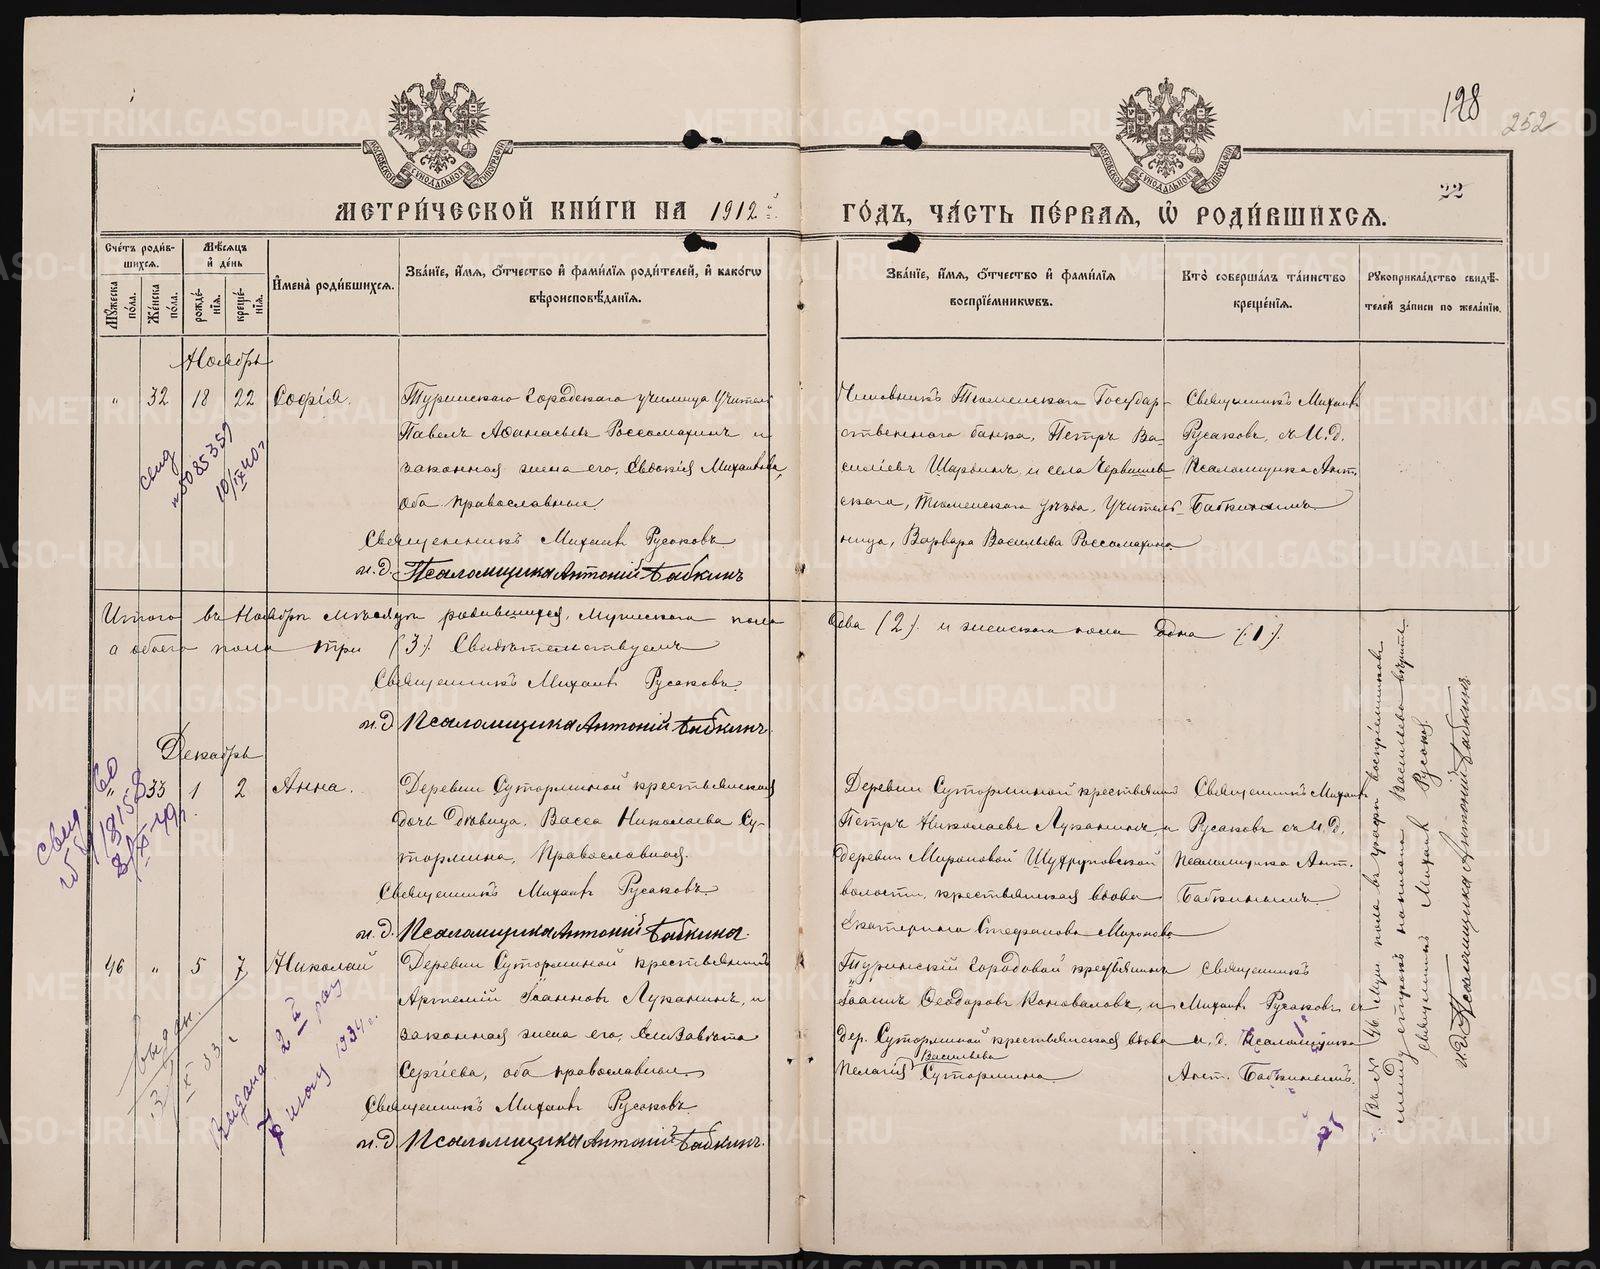 128
252
22
МОСКОВСКОЙ СѴНОДАЛЬНОЙ ТИПОГРАФІИ
МОСКОВСКОЙ СѴНОДАЛЬНОЙ ТИПОГРАФІИ
МЕТРИ́ЧЕСКОЙ КНИ́ГИ НА 1912 й
ГО́ДЪ, ЧА́СТЬ ПЕ́РВАЯ, Ѿ РОДИ́ВШИХСЯ.
Сче́тъ роди́в-
шихся.
Мѣ́сяцъ
и҆ де́нь
Му́жеска по́ла.
Же́нска по́ла.
рожде́нїя.
креще́нїя.
И҆мена̀ роди́вшихся.
Зва́нїе, и҆́мя, ѻ҆́тчество и҆ фами́лїя роди́телей, и҆ како́гѡ
вѣроисповѣ́данїя.
Зва́нїе, и҆́мя, ѻ҆́тчество и҆ фами́лїя
воспрїе́мниковъ.
Кто̀ соверша́лъ та́инство
креще́нїя.
Рꙋкоприкла́дство свидѣ́-
телей за́писи по жела́нїю.
Ноябрь
" 32 18 22 Софія.
Туринскаго Городскаго училища Учитель
Павелъ Аѳанасьевъ Россомахинъ и
законная жена его, Евдокія Михайлова,
оба православные.
Священникъ Михаилъ Русаковъ
и. д. Псаломщика Антоній Бабкинъ
Чиновникъ Тюменскаго Государ-
ственнаго банка, Петръ Ва-
силіевъ Шарвинъ, и села Червишев-
скаго, Тюменскаго уѣзда, Учитель-
ница, Варвара Васильева Россомахина
Священникъ Михаилъ
Русаковъ, съ И. д.
Псаломщика Ант.
Бабкинымъ
свид
№ 5085359
10/IX 40 г
Итого въ Ноябрѣ мѣсяцѣ родившихся, Мужескаго пола
два (2). и женскаго пола одна (1).
а обоего пола три (3). Свидѣтельствуемъ
Священникъ Михаилъ Русаковъ.
и. д. Псаломщика Антоній Бабкинъ
Декабрь
" 33 1 2 Анна.
Деревни Суторминой крестьянская
дочь дѣвица, Васса Николаева Су-
тормина, Православная.
Священникъ Михаилъ Русаковъ
и. д. Псаломщика Антоній Бабкинъ.
Деревни Суторминой крестьянинъ
Петръ Николаевъ Луканинъ и
деревни Мироновой
волости, крестьянская вдова
Екатерина Стефанова Миронова
Священникъ Михаилъ
Русаковъ съ И. Д.
псаломщика Ант.
Бабкинымъ.
свид.
46 " 5 7 Николай
Деревни Суторминой крестьянинъ
Артемій Іоанновъ Луканинъ, и
законная жена его, Елизавета
Сергіева, оба православные.
Священникъ Михаилъ Русаковъ
и. д. Псаломщика Антоній Бабкинъ.
Туринскій Городовой крестьянинъ
Іоаннъ Ѳеодоровъ Коноваловъ, и
дер. Суторминой крестьянская вдова
Васильева
Пелагія Сутормина.
Священникъ
Михаилъ Русаковъ съ
и. д. Псаломщика
Ант. Бабкинымъ.
Выдан.
Выдана 2й раз
1934 г.
Въ № 46 муж. пола въ графѣ воспріемниковъ
между строкъ написано Васильева вѣрить.
священникъ Михаилъ Русаковъ
и. д. Псаломщика Антоній Бабкинъ
METRIKI.GASO-URAL.RU